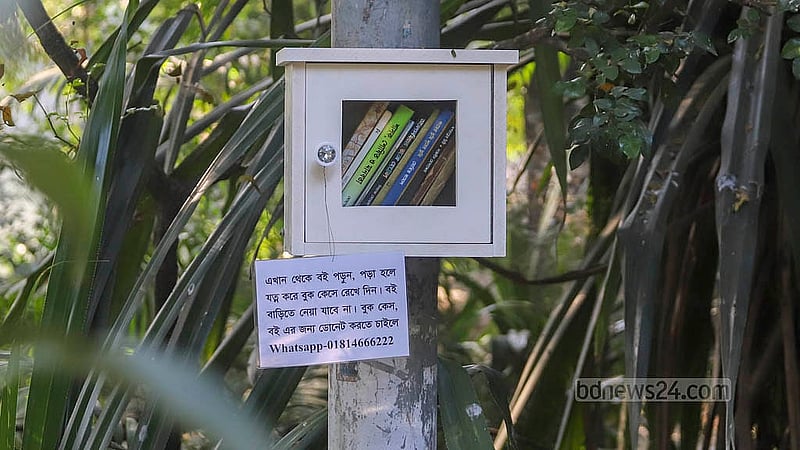 এখান থেকে বই পড়ুন, পড়া হলে
যত্ন করে বুক কেসে রেখে দিন। বই
বাড়িতে নেয়া যাবে না। বুক কেস,
বই এর জন্য ডোনেট করতে চাইলে
Whatsapp-01814666222
bdnews24.com